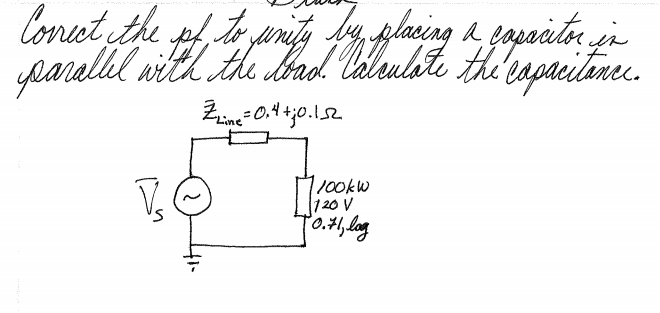 Correct the pf to unity by placing a capacitor in
parallel with the load. Calculate the capacitance.
Z̄Line = 0.4 + j0.1Ω
V̄s
~
100kW
120 V
0.71, lag